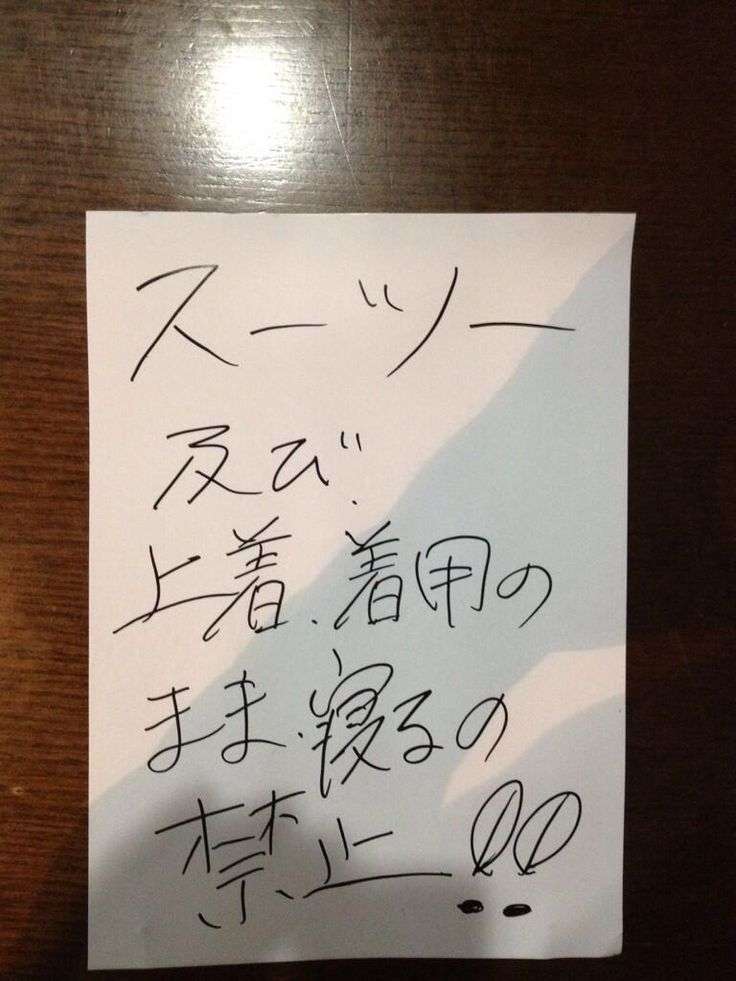 スーツー
及び、
上着、着用の
まま、寝るの
禁止!!